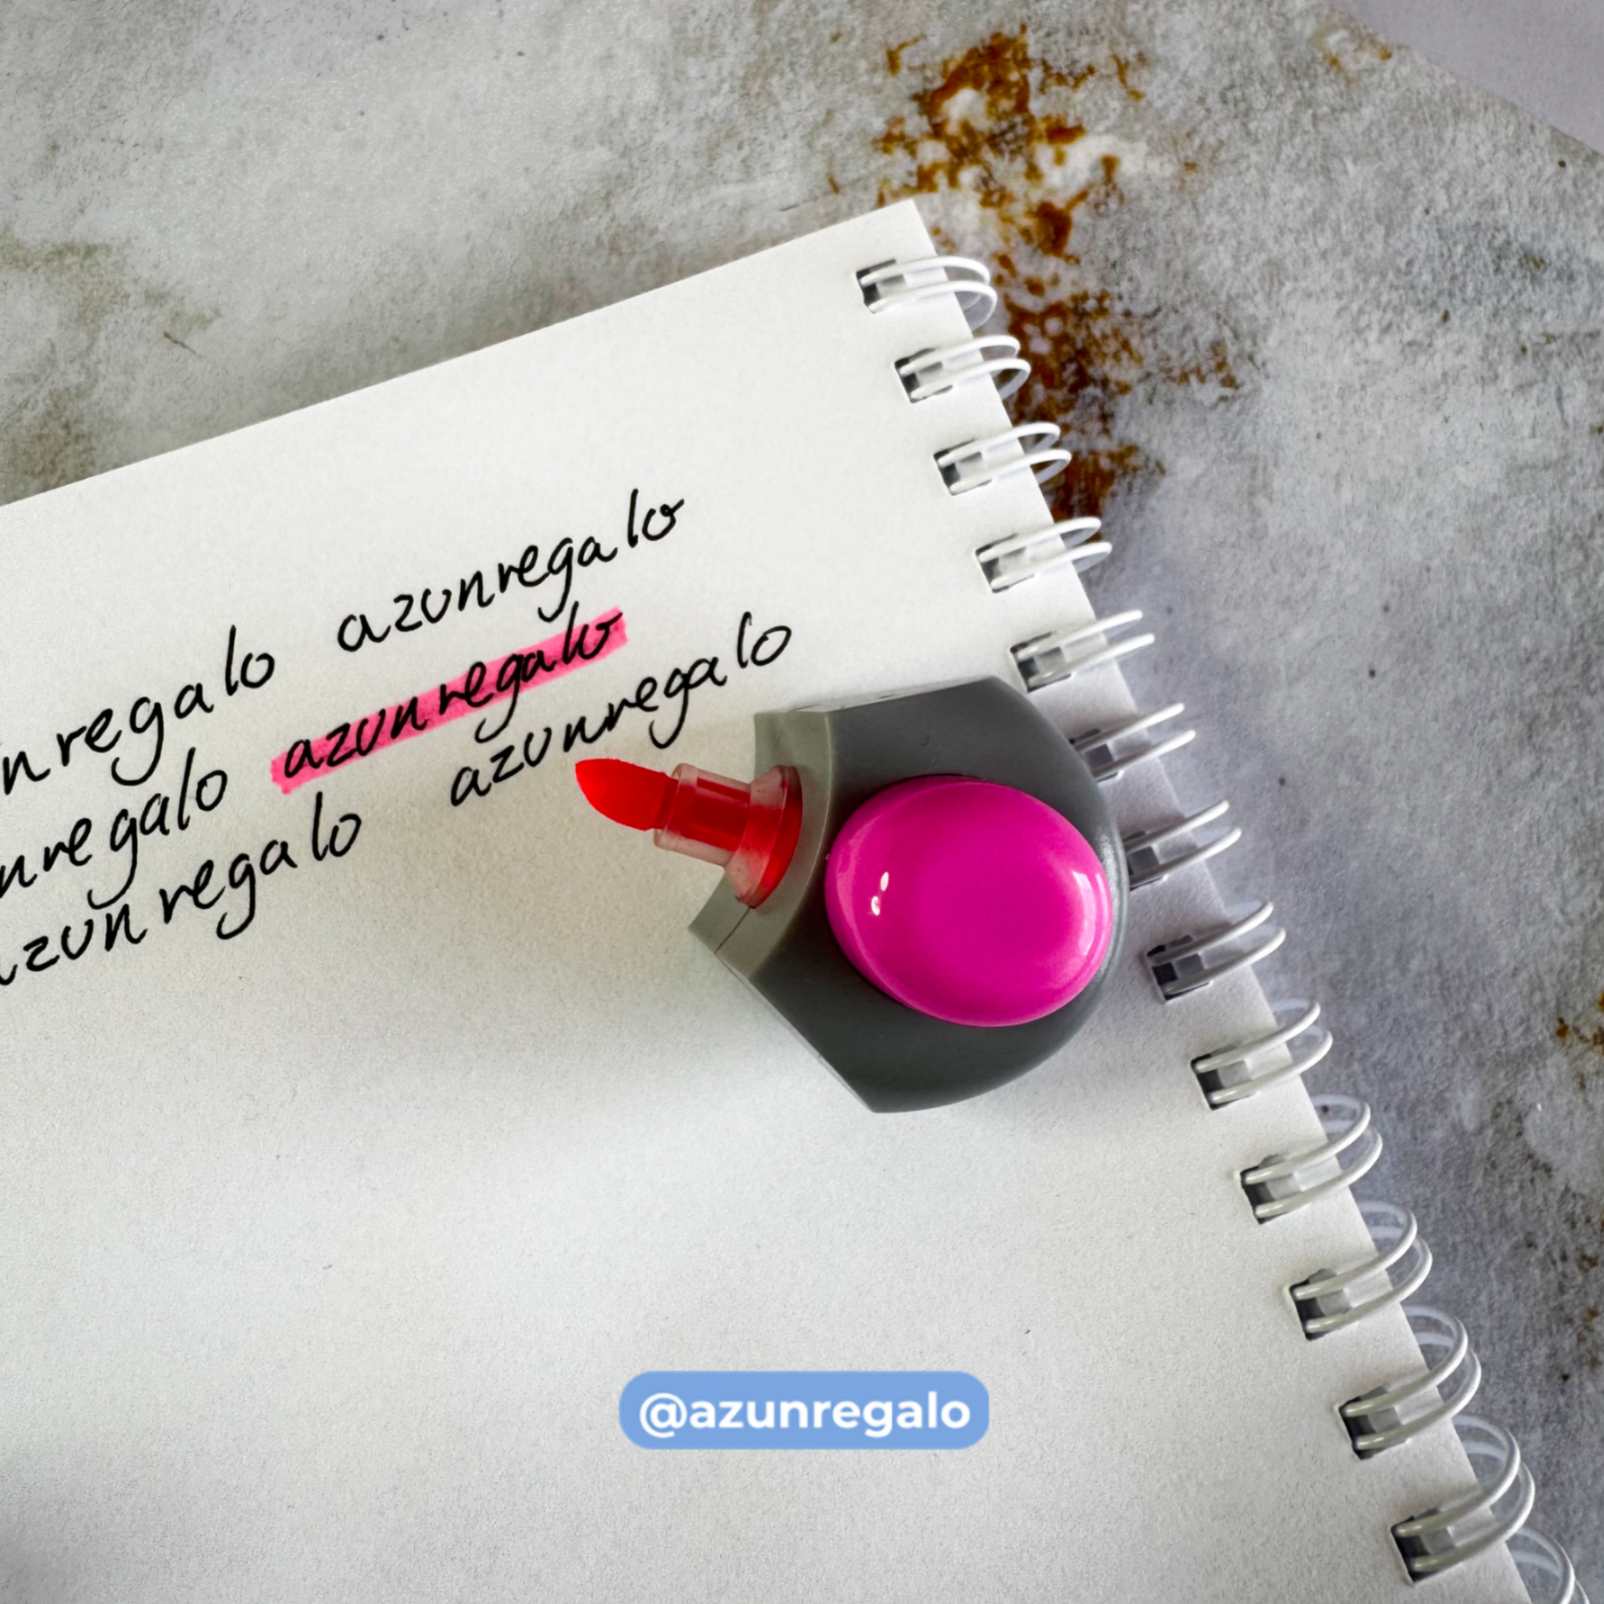 nregalo azunregalo
nregalo azunregalo
azunregalo azunregalo
@azunregalo